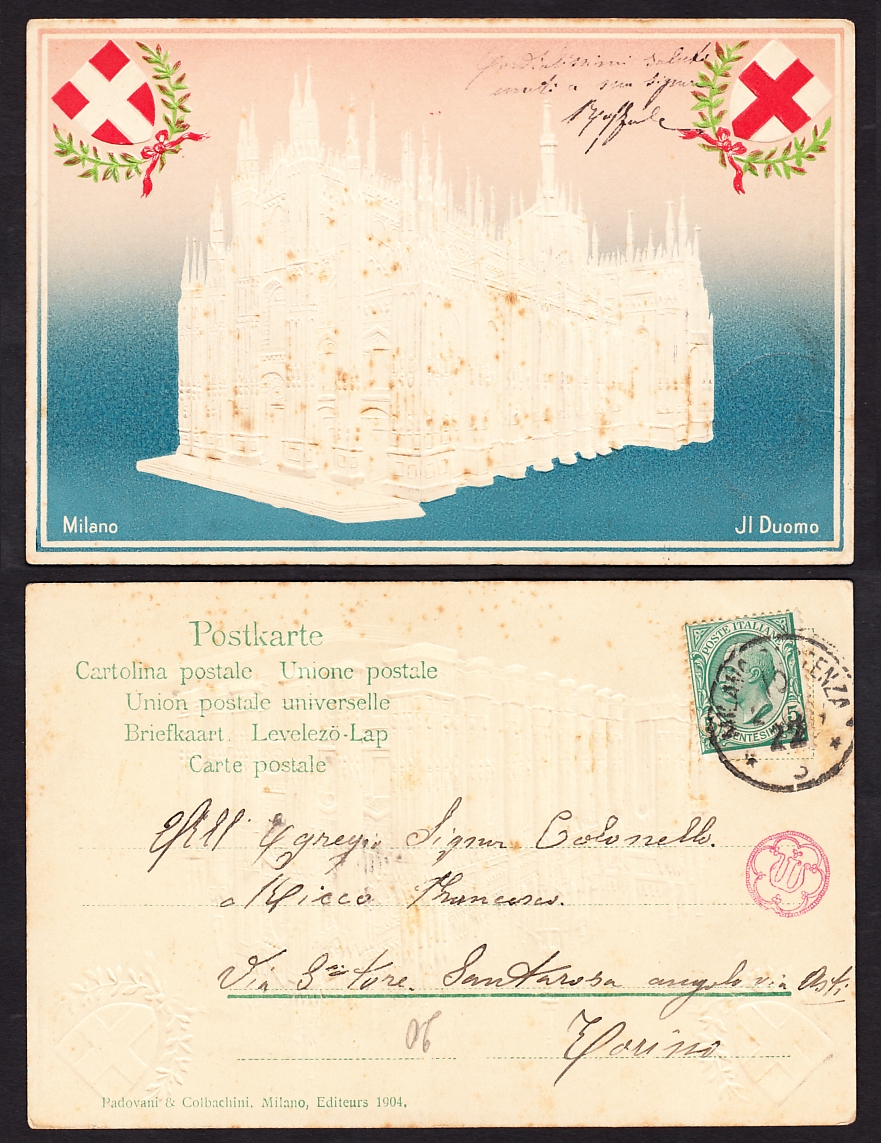 Cordialissimi saluti
Milano
Jl Duomo
Postkarte
Cartolina postale Unione postale
Union postale universelle
Briefkaart. Levelező-Lap
Carte postale
POSTE ITALIANE
CENTESIMI 5
PARTENZA
22
All' Egregio Signor Colonello
Ricco Francesco.
Via S. Santarosa angolo via Asti
Torino
06
Padovani & Colbachini, Milano, Editeurs 1904.